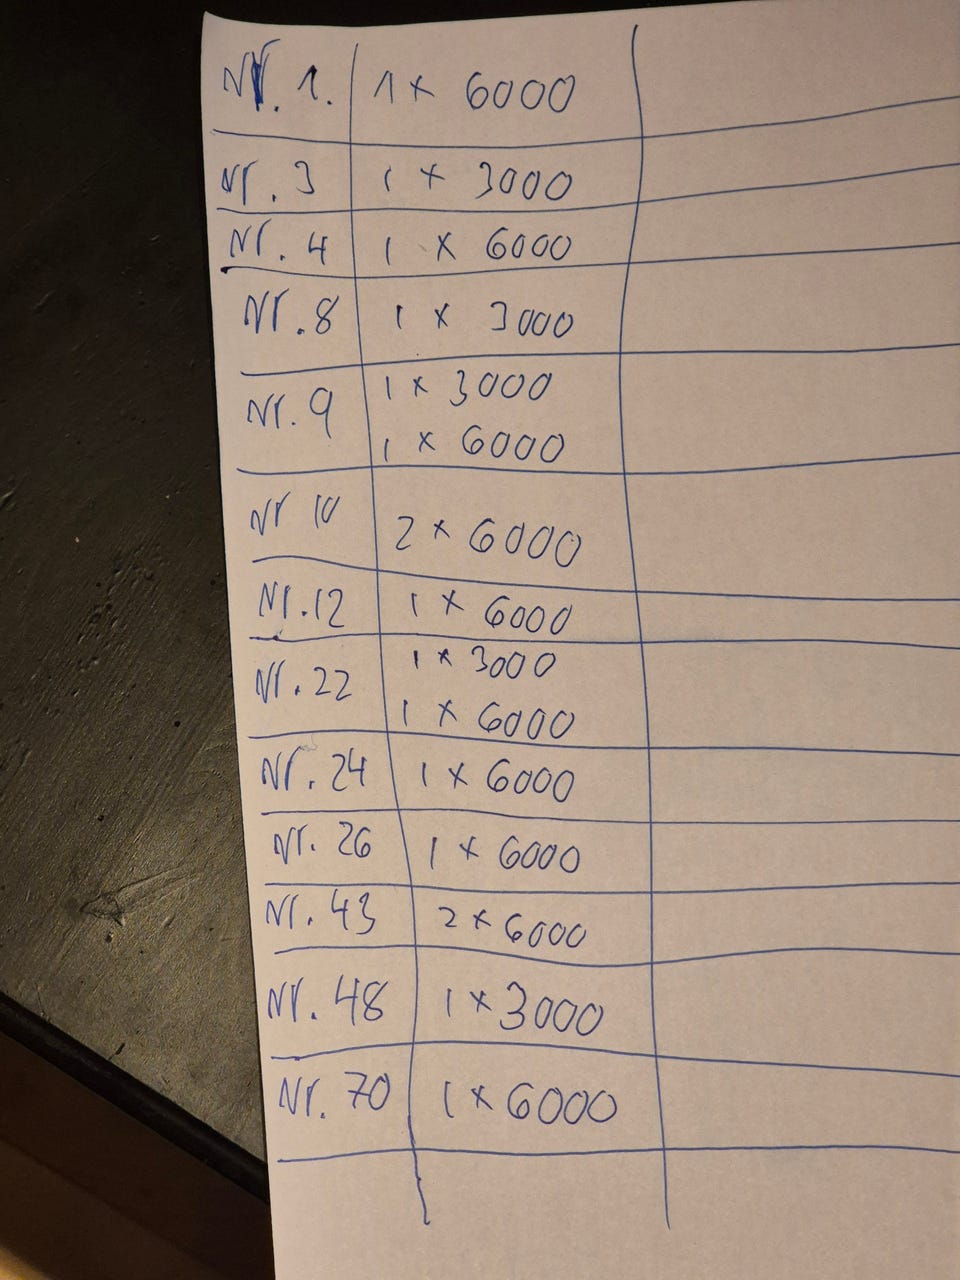 Nr. 1. 1 x 6000
Nr. 3 1 x 3000
Nr. 4 1 x 6000
Nr. 8 1 x 3000
Nr. 9 1 x 3000
1 x 6000
Nr 10 2 x 6000
Nr. 12 1 x 6000
Nr. 22 1 x 3000
1 x 6000
Nr. 24 1 x 6000
Nr. 26 1 x 6000
Nr. 43 2 x 6000
Nr. 48 1 x 3000
Nr. 70 1 x 6000